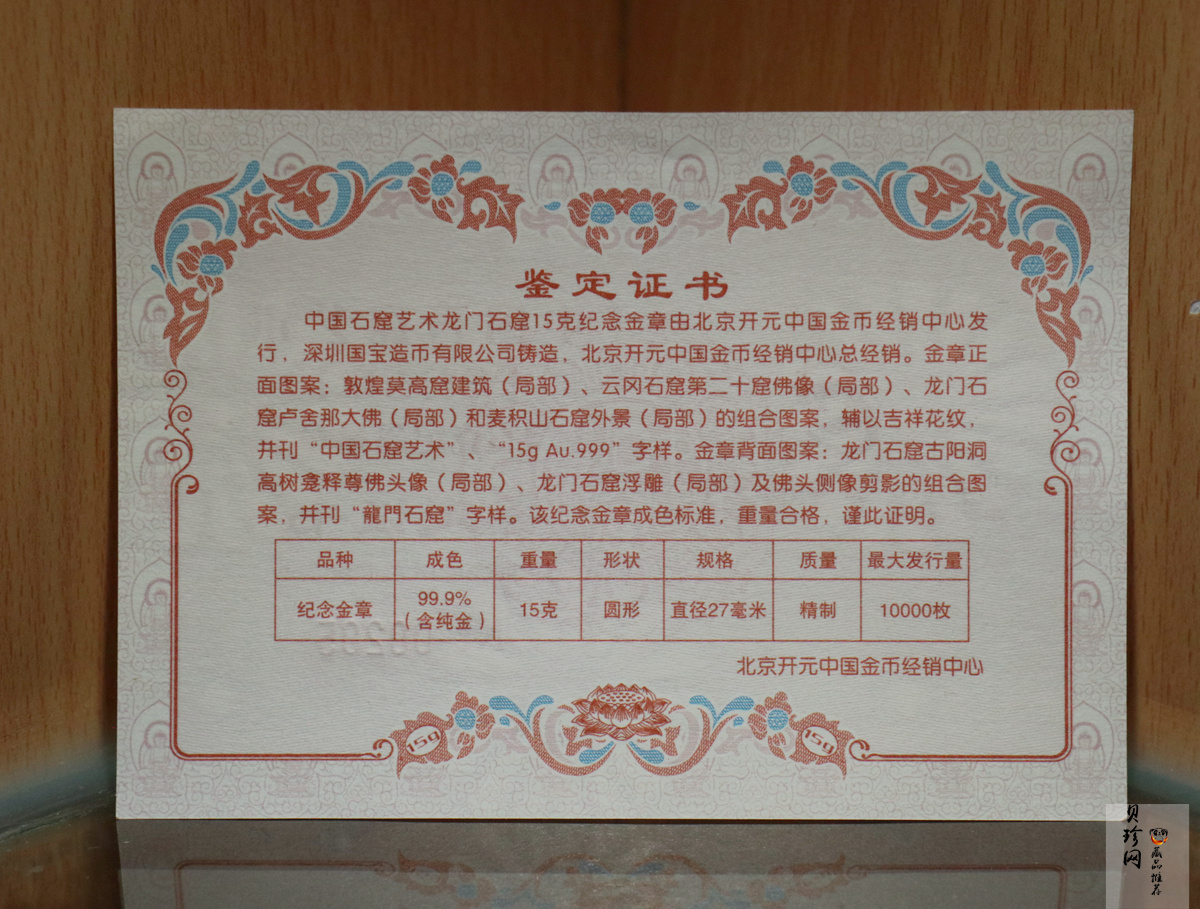 鉴定证书
中国石窟艺术龙门石窟15克纪念金章由北京开元中国金币经销中心发
行，深圳国宝造币有限公司铸造，北京开元中国金币经销中心总经销。金章正
面图案：敦煌莫高窟建筑（局部）、云冈石窟第二十窟佛像（局部）、龙门石
窟卢舍那大佛（局部）和麦积山石窟外景（局部）的组合图案，辅以吉祥花纹，
并刊“中国石窟艺术”、“15g Au.999”字样。金章背面图案：龙门石窟古阳洞
高树龛释尊佛头像（局部）、龙门石窟浮雕（局部）及佛头侧像剪影的组合图
案，并刊“龍門石窟”字样。该纪念金章成色标准，重量合格，谨此证明。
品种 成色 重量 形状 规格 质量 最大发行量
纪念金章 99.9%（含纯金） 15克 圆形 直径27毫米 精制 10000枚
北京开元中国金币经销中心
15g 15g
贝珍网
藏品推荐